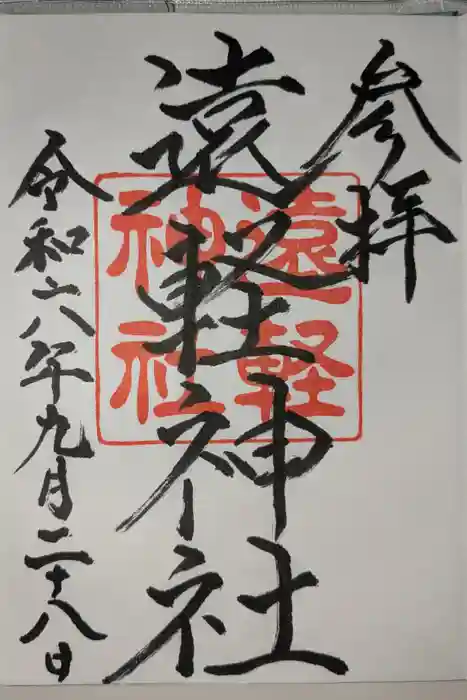 参拝
遠軽神社
遠軽
神社
令和六年九月二十八日